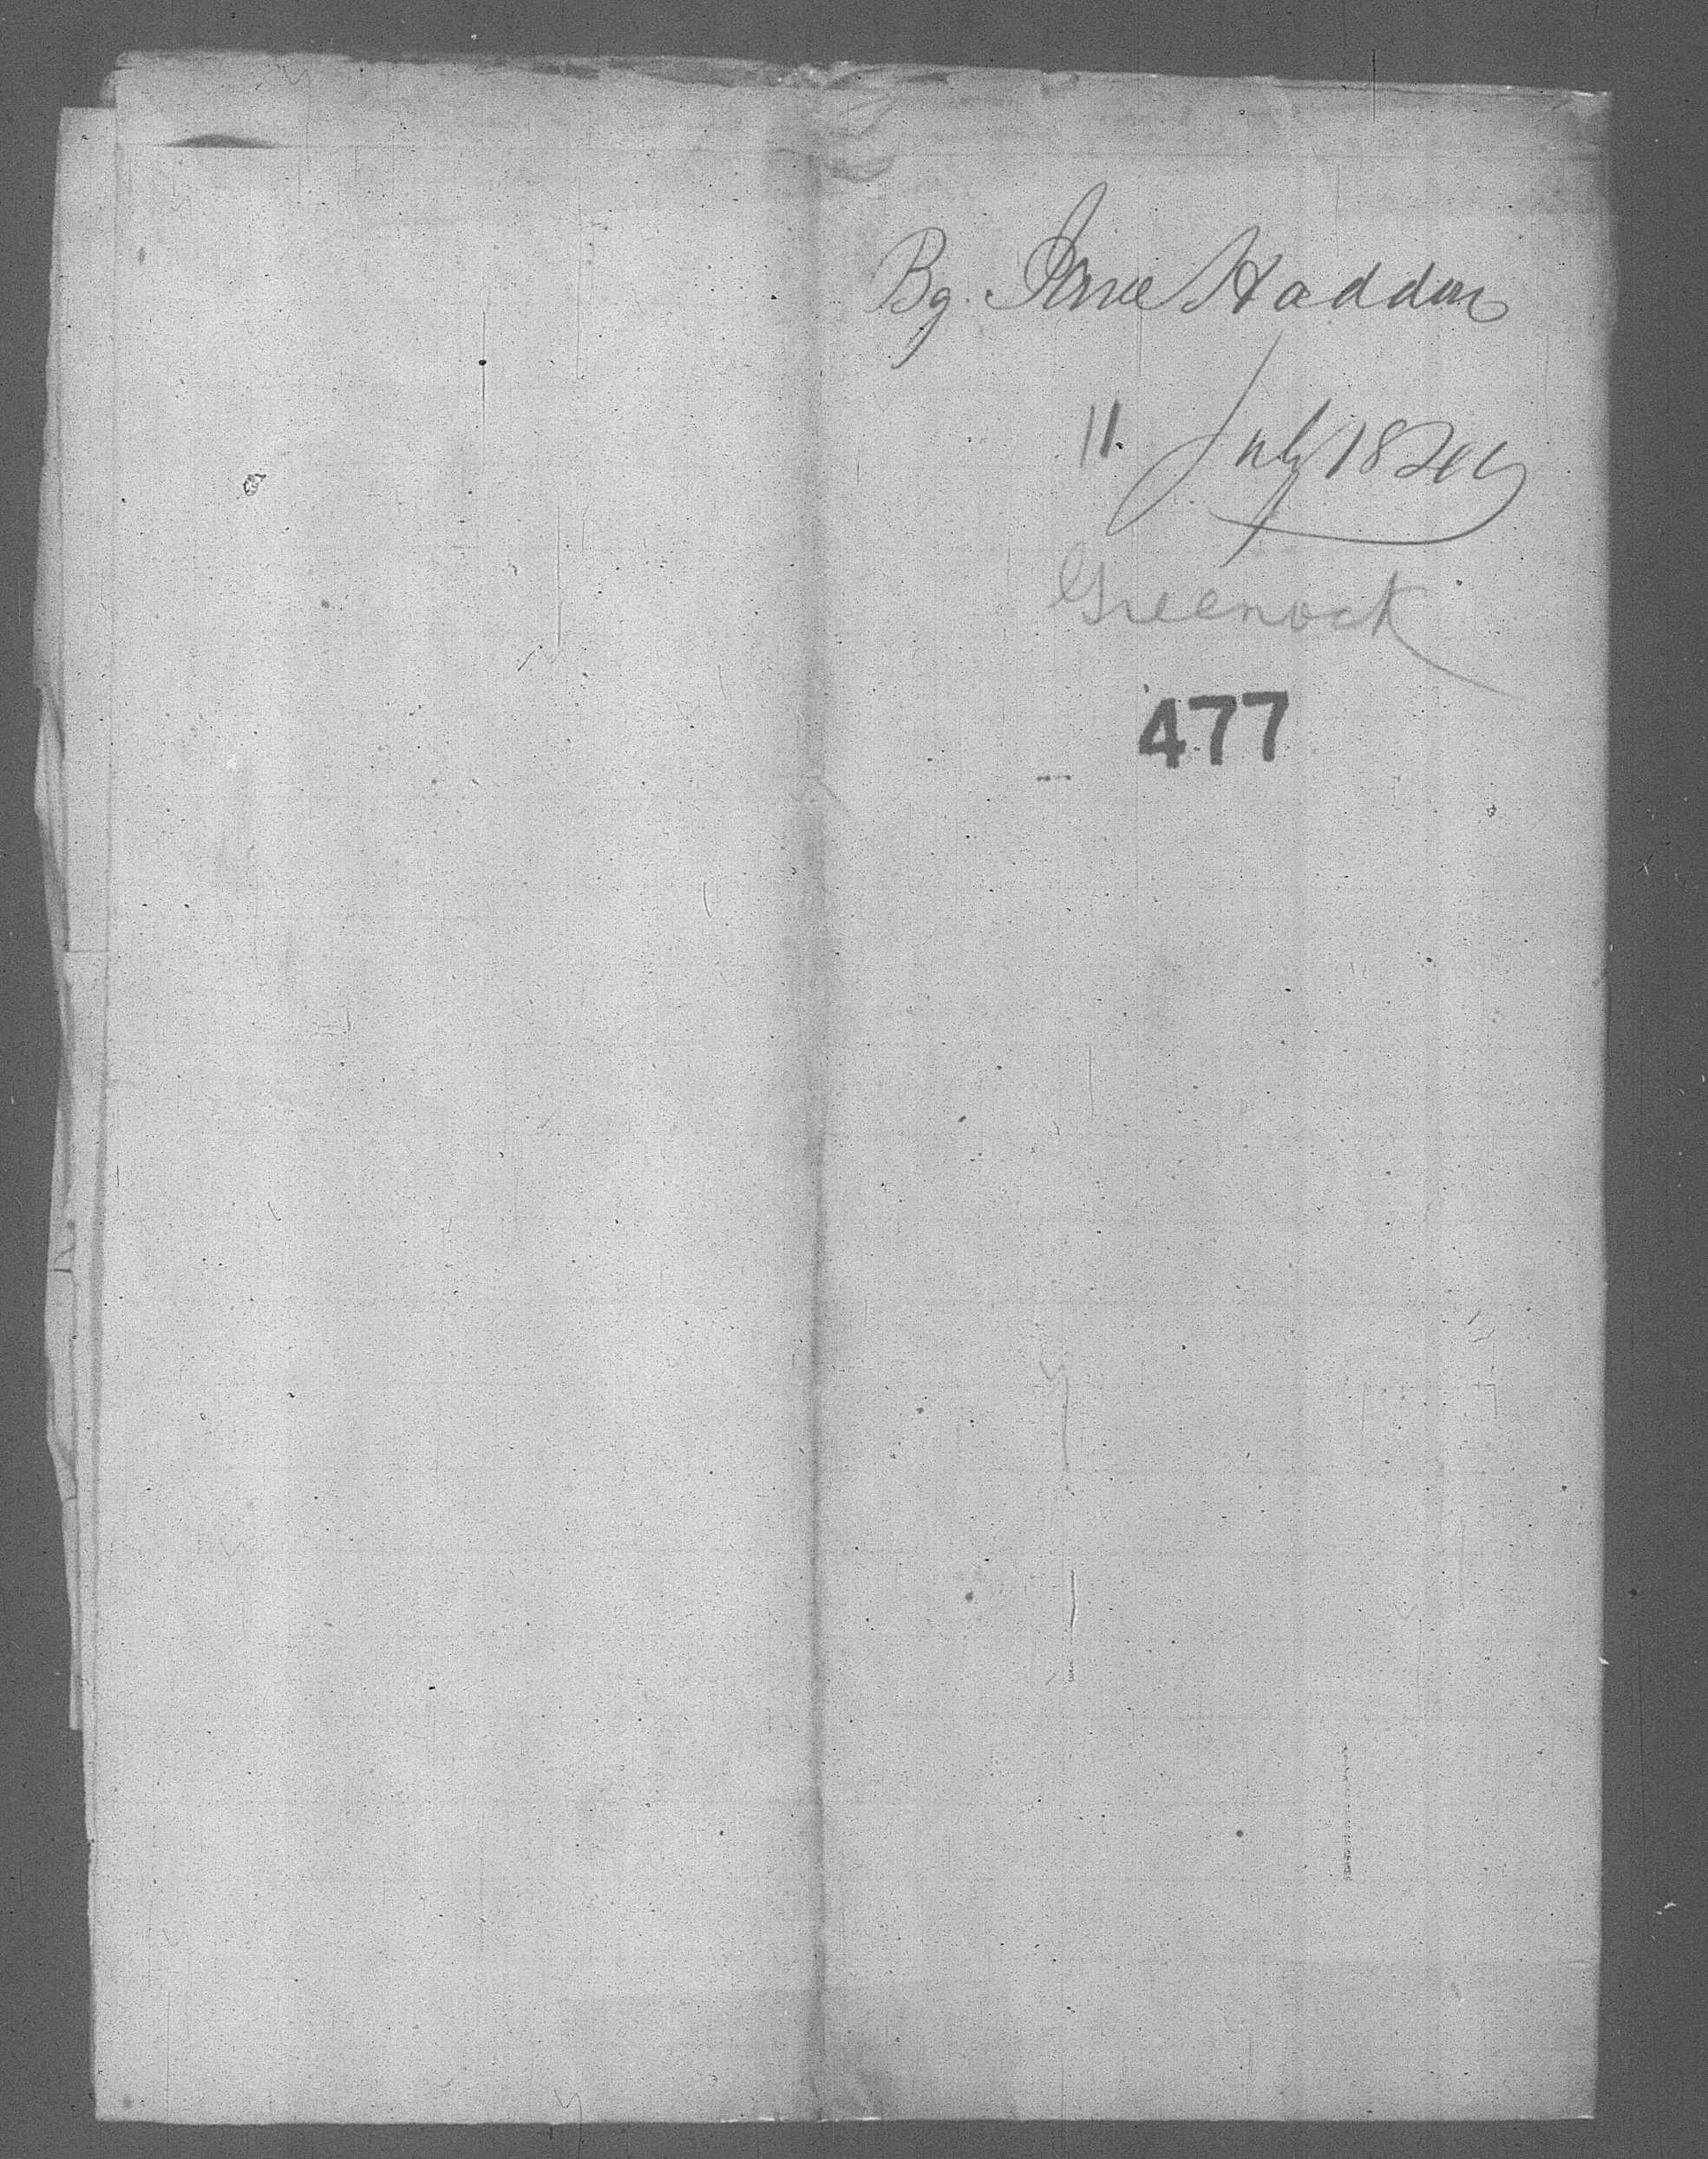 Bg. Jane Haddon
11. July 18
Greenock
477